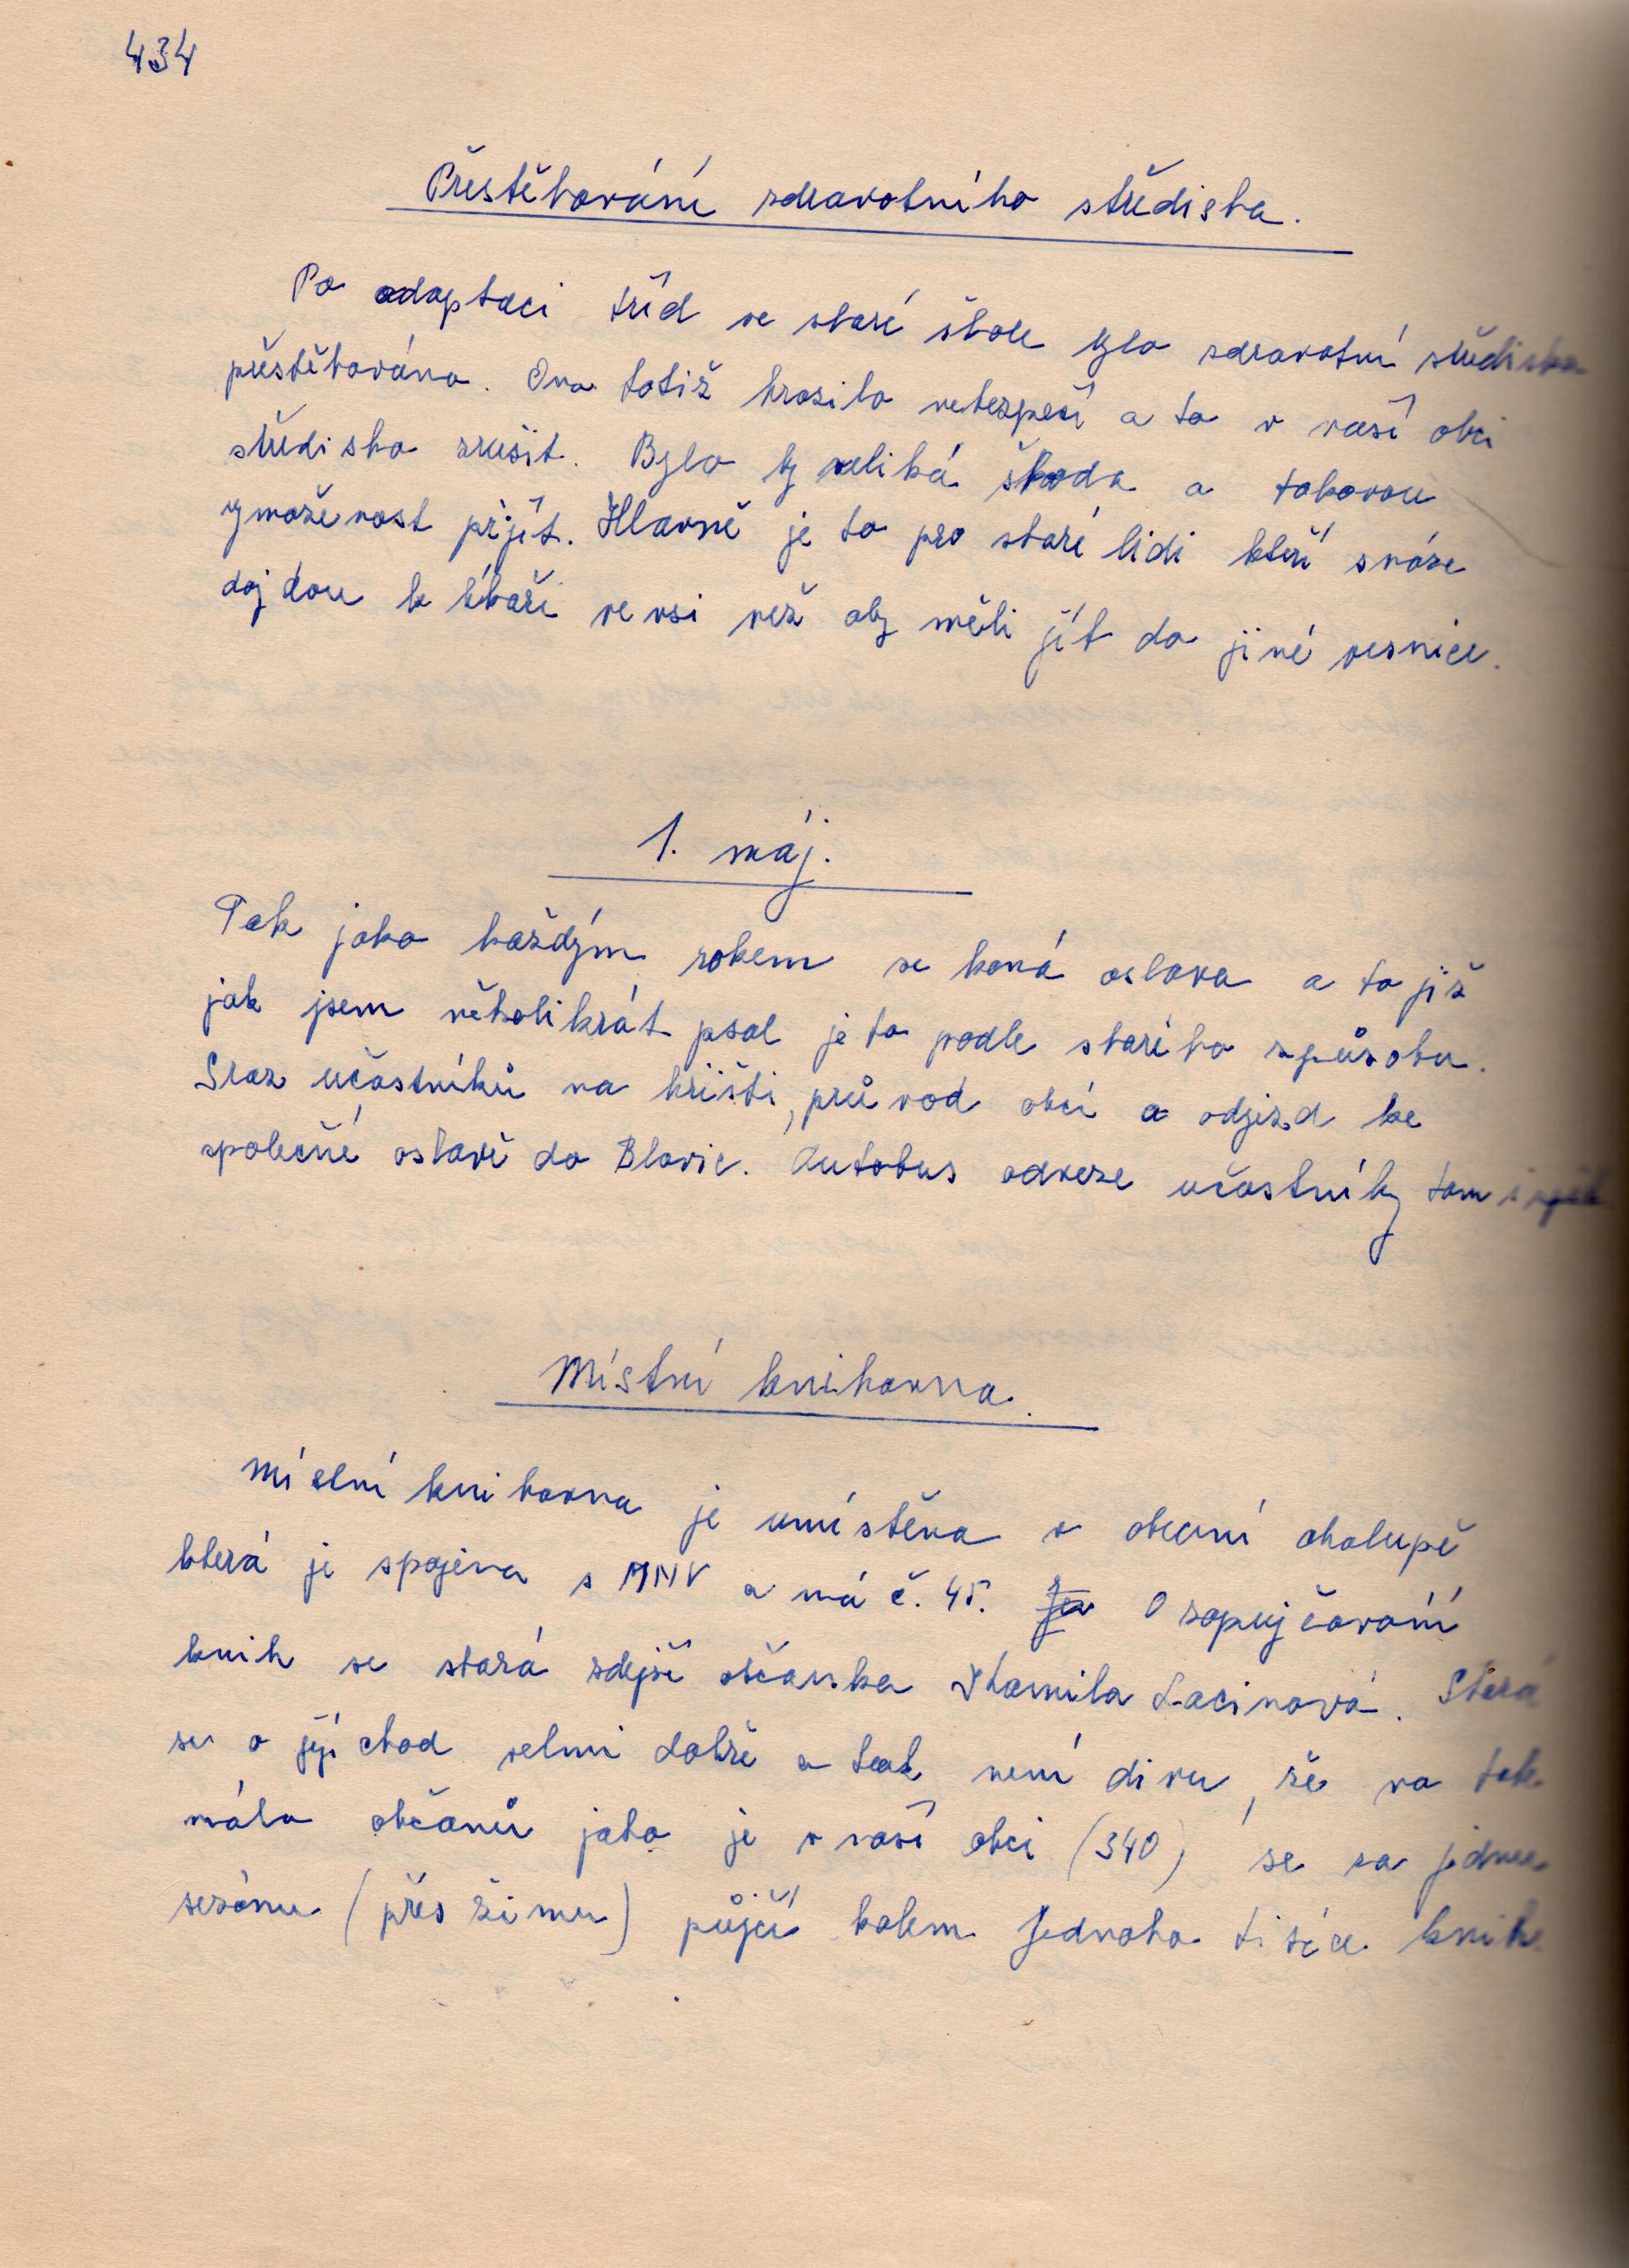 434
Přestěhování zdravotního střediska.
Po adaptaci tříd ve staré škole bylo zdravotní středisko
přestěhováno. Ono totiž hrozilo nebezpečí a to v naší obci
středisko zrušit. Bylo by veliká škoda o takovou
vymoženost přijít. Hlavně je to pro staré lidi kteří snáze
dojdou k lékaři ve vsi než aby měli jít do jiné vesnice.
1. máj.
Tak jako každým rokem se koná oslava a to již
jak jsem několikrát psal je to podle starého způsobu.
Sraz učastníků na hřišti, průvod obcí a odjezd ke
společné oslavě do Blovic. Autobus odveze učastníky tam i zpět
Místní knihovna.
Místní knihovna je umístěna v obecní chalupě
která je spojena s MNV a má č. 45. O zapujčování
knih se stará zdejší občanka Lacinová. Stará
se o její chod velmi dobře a tak není divu, že na tak
málo občanů jako je v naší obci (340) se za jednu
sezónu (přes zimu) půjčí kolem jednoho tisíce knih